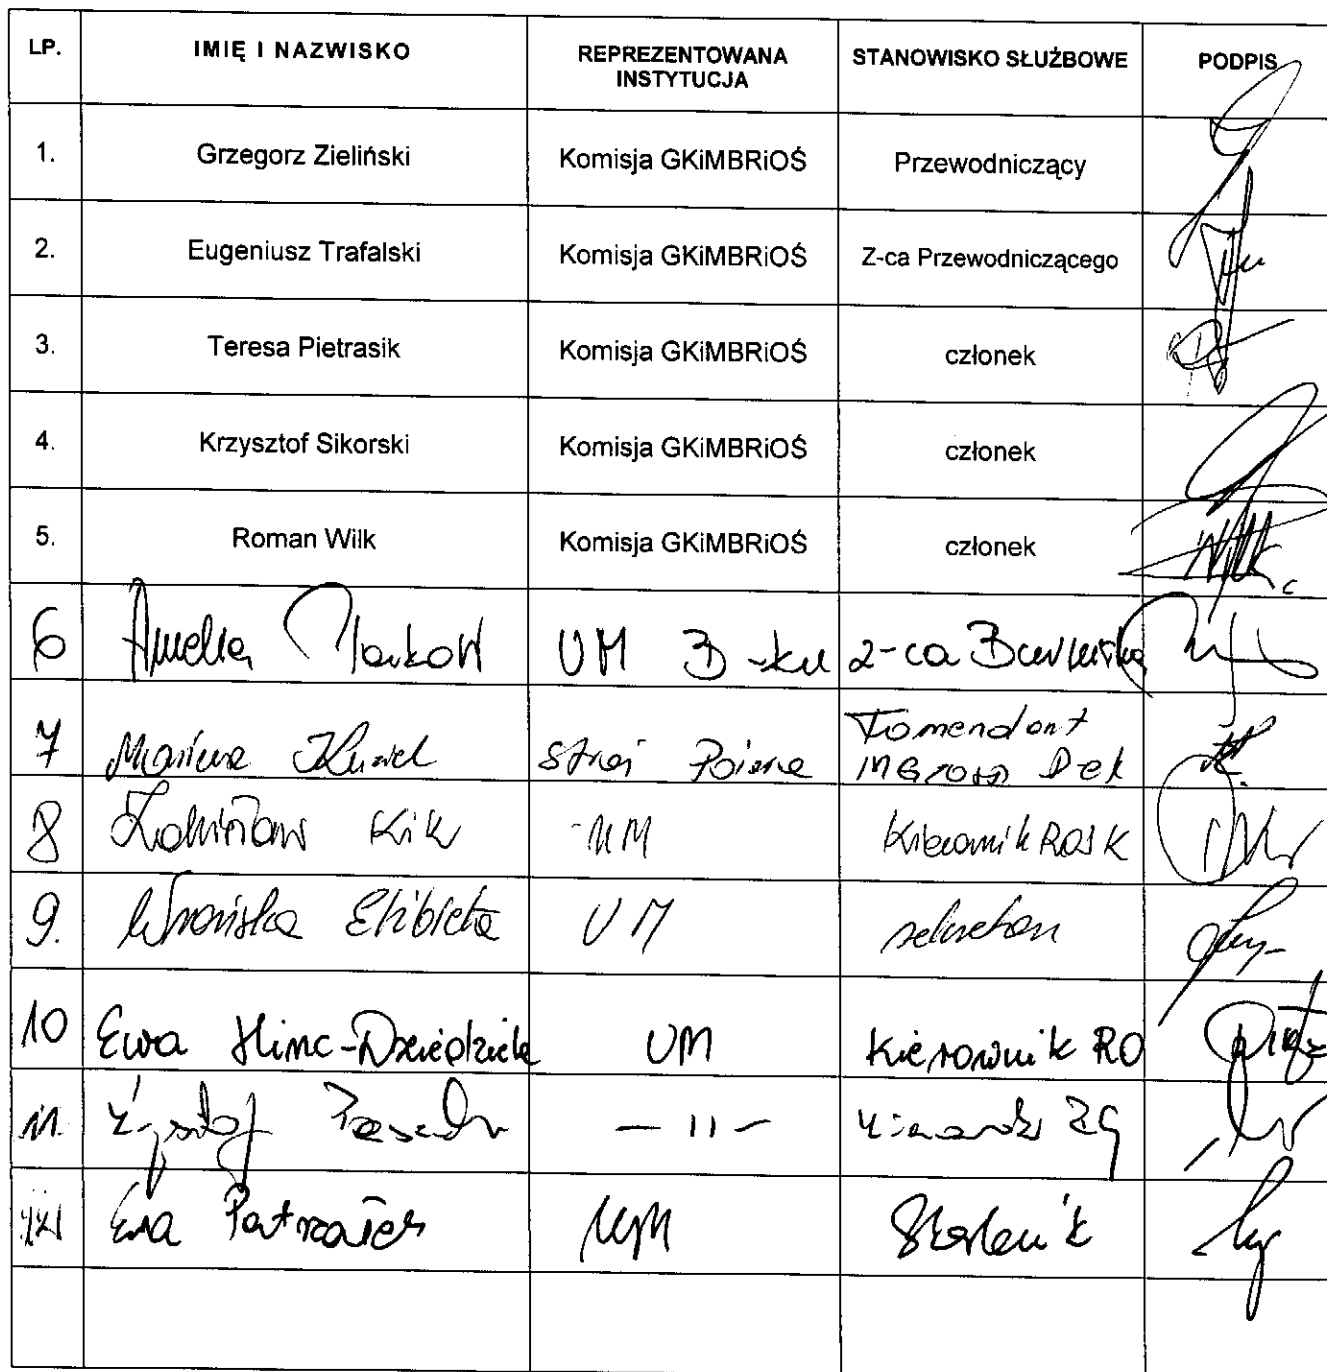 LP. IMIĘ I NAZWISKO REPREZENTOWANA INSTYTUCJA STANOWISKO SŁUŻBOWE PODPIS
1. Grzegorz Zieliński Komisja GKiMBRiOŚ Przewodniczący
2. Eugeniusz Trafalski Komisja GKiMBRiOŚ Z-ca Przewodniczącego
3. Teresa Pietrasik Komisja GKiMBRiOŚ członek
4. Krzysztof Sikorski Komisja GKiMBRiOŚ członek
5. Roman Wilk Komisja GKiMBRiOŚ członek
6 Amelia UM B-ku Z-ca Burmistrza
7 Straż Komendant
8 Kik UM Kierownik
9. Wrońska Elżbieta UM sekretarz
10 Ewa Hinc-Dziedzicka UM Kierownik RO
11. Krzysztof — 11 —
Ewa UM Skarbnik